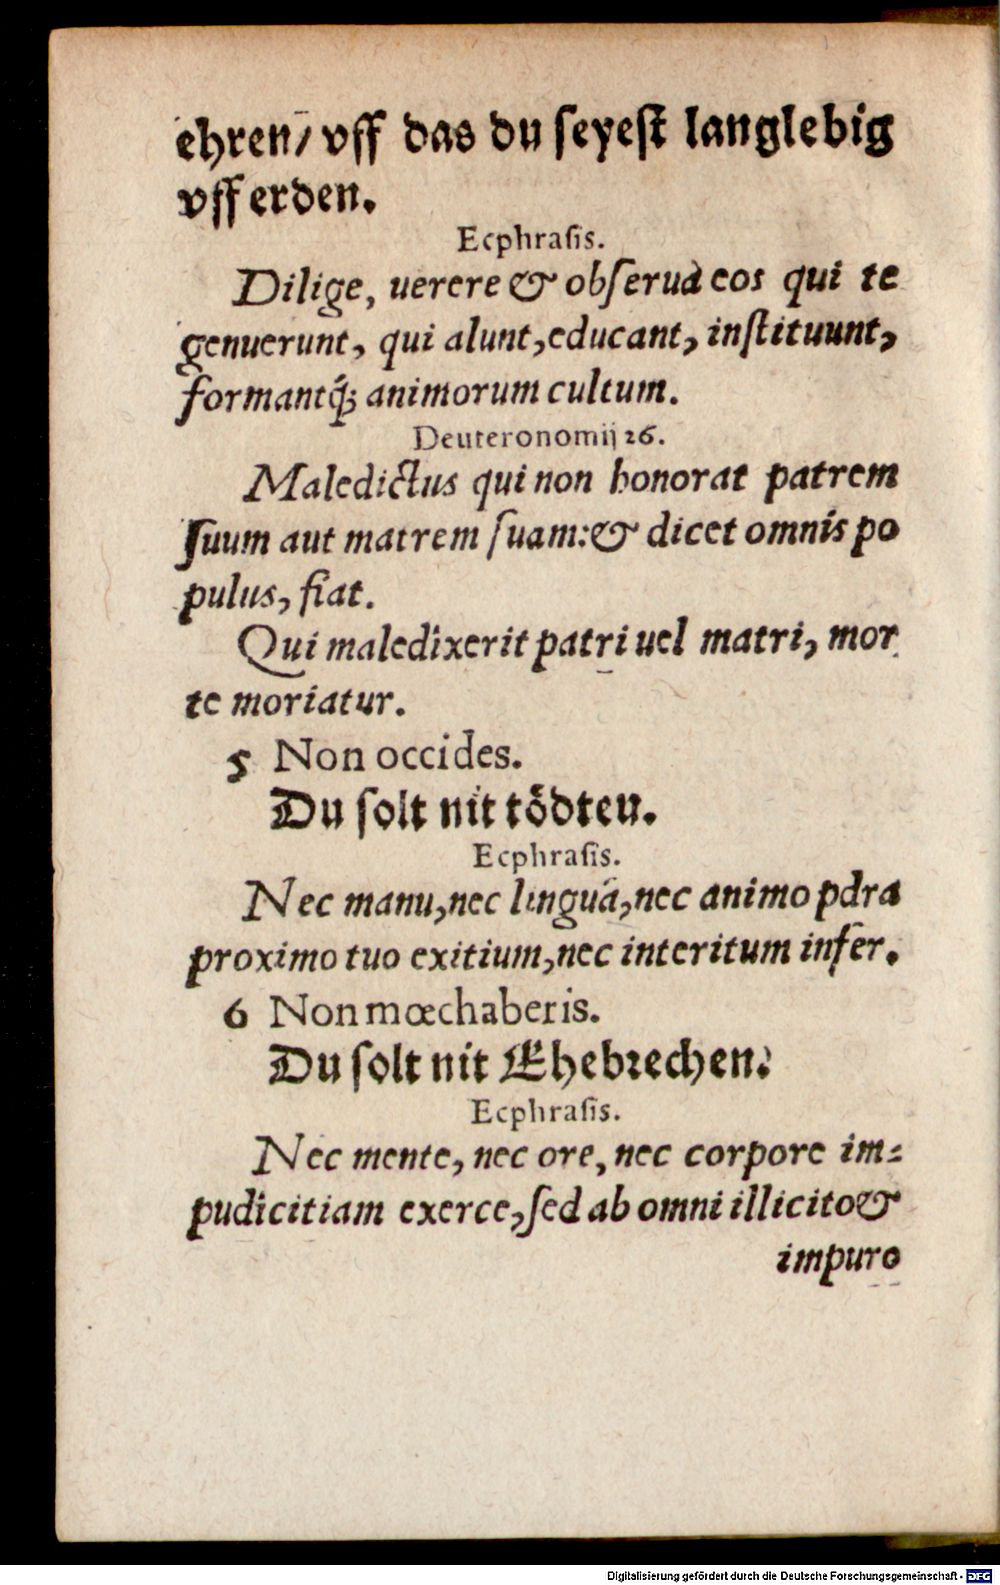 ehren/ vff das du ſeyeſt langlebig
vff erden.
Ecphraſis.
Dilige, uerere & obſerua eos qui te
genuerunt, qui alunt, educant, inſtituunt,
formantq́; animorum cultum.
Deuteronomij 26.
Maledictus qui non honorat patrem
ſuum aut matrem ſuam: & dicet omnis po
pulus, fiat.
Qui maledixerit patri uel matri, mor
te moriatur.
5 Non occides.
Du ſolt nit tödten.
Ecphraſis.
Nec manu, nec lingua, nec animo pdra
proximo tuo exitium, nec interitum infer.
6 Non mœchaberis.
Du ſolt nit Ehebrechen.
Ecphraſis.
Nec mente, nec ore, nec corpore im⸗
pudicitiam exerce, ſed ab omni illicito &
impuro
Digitalisierung gefördert durch die Deutsche Forschungsgemeinschaft - DFG